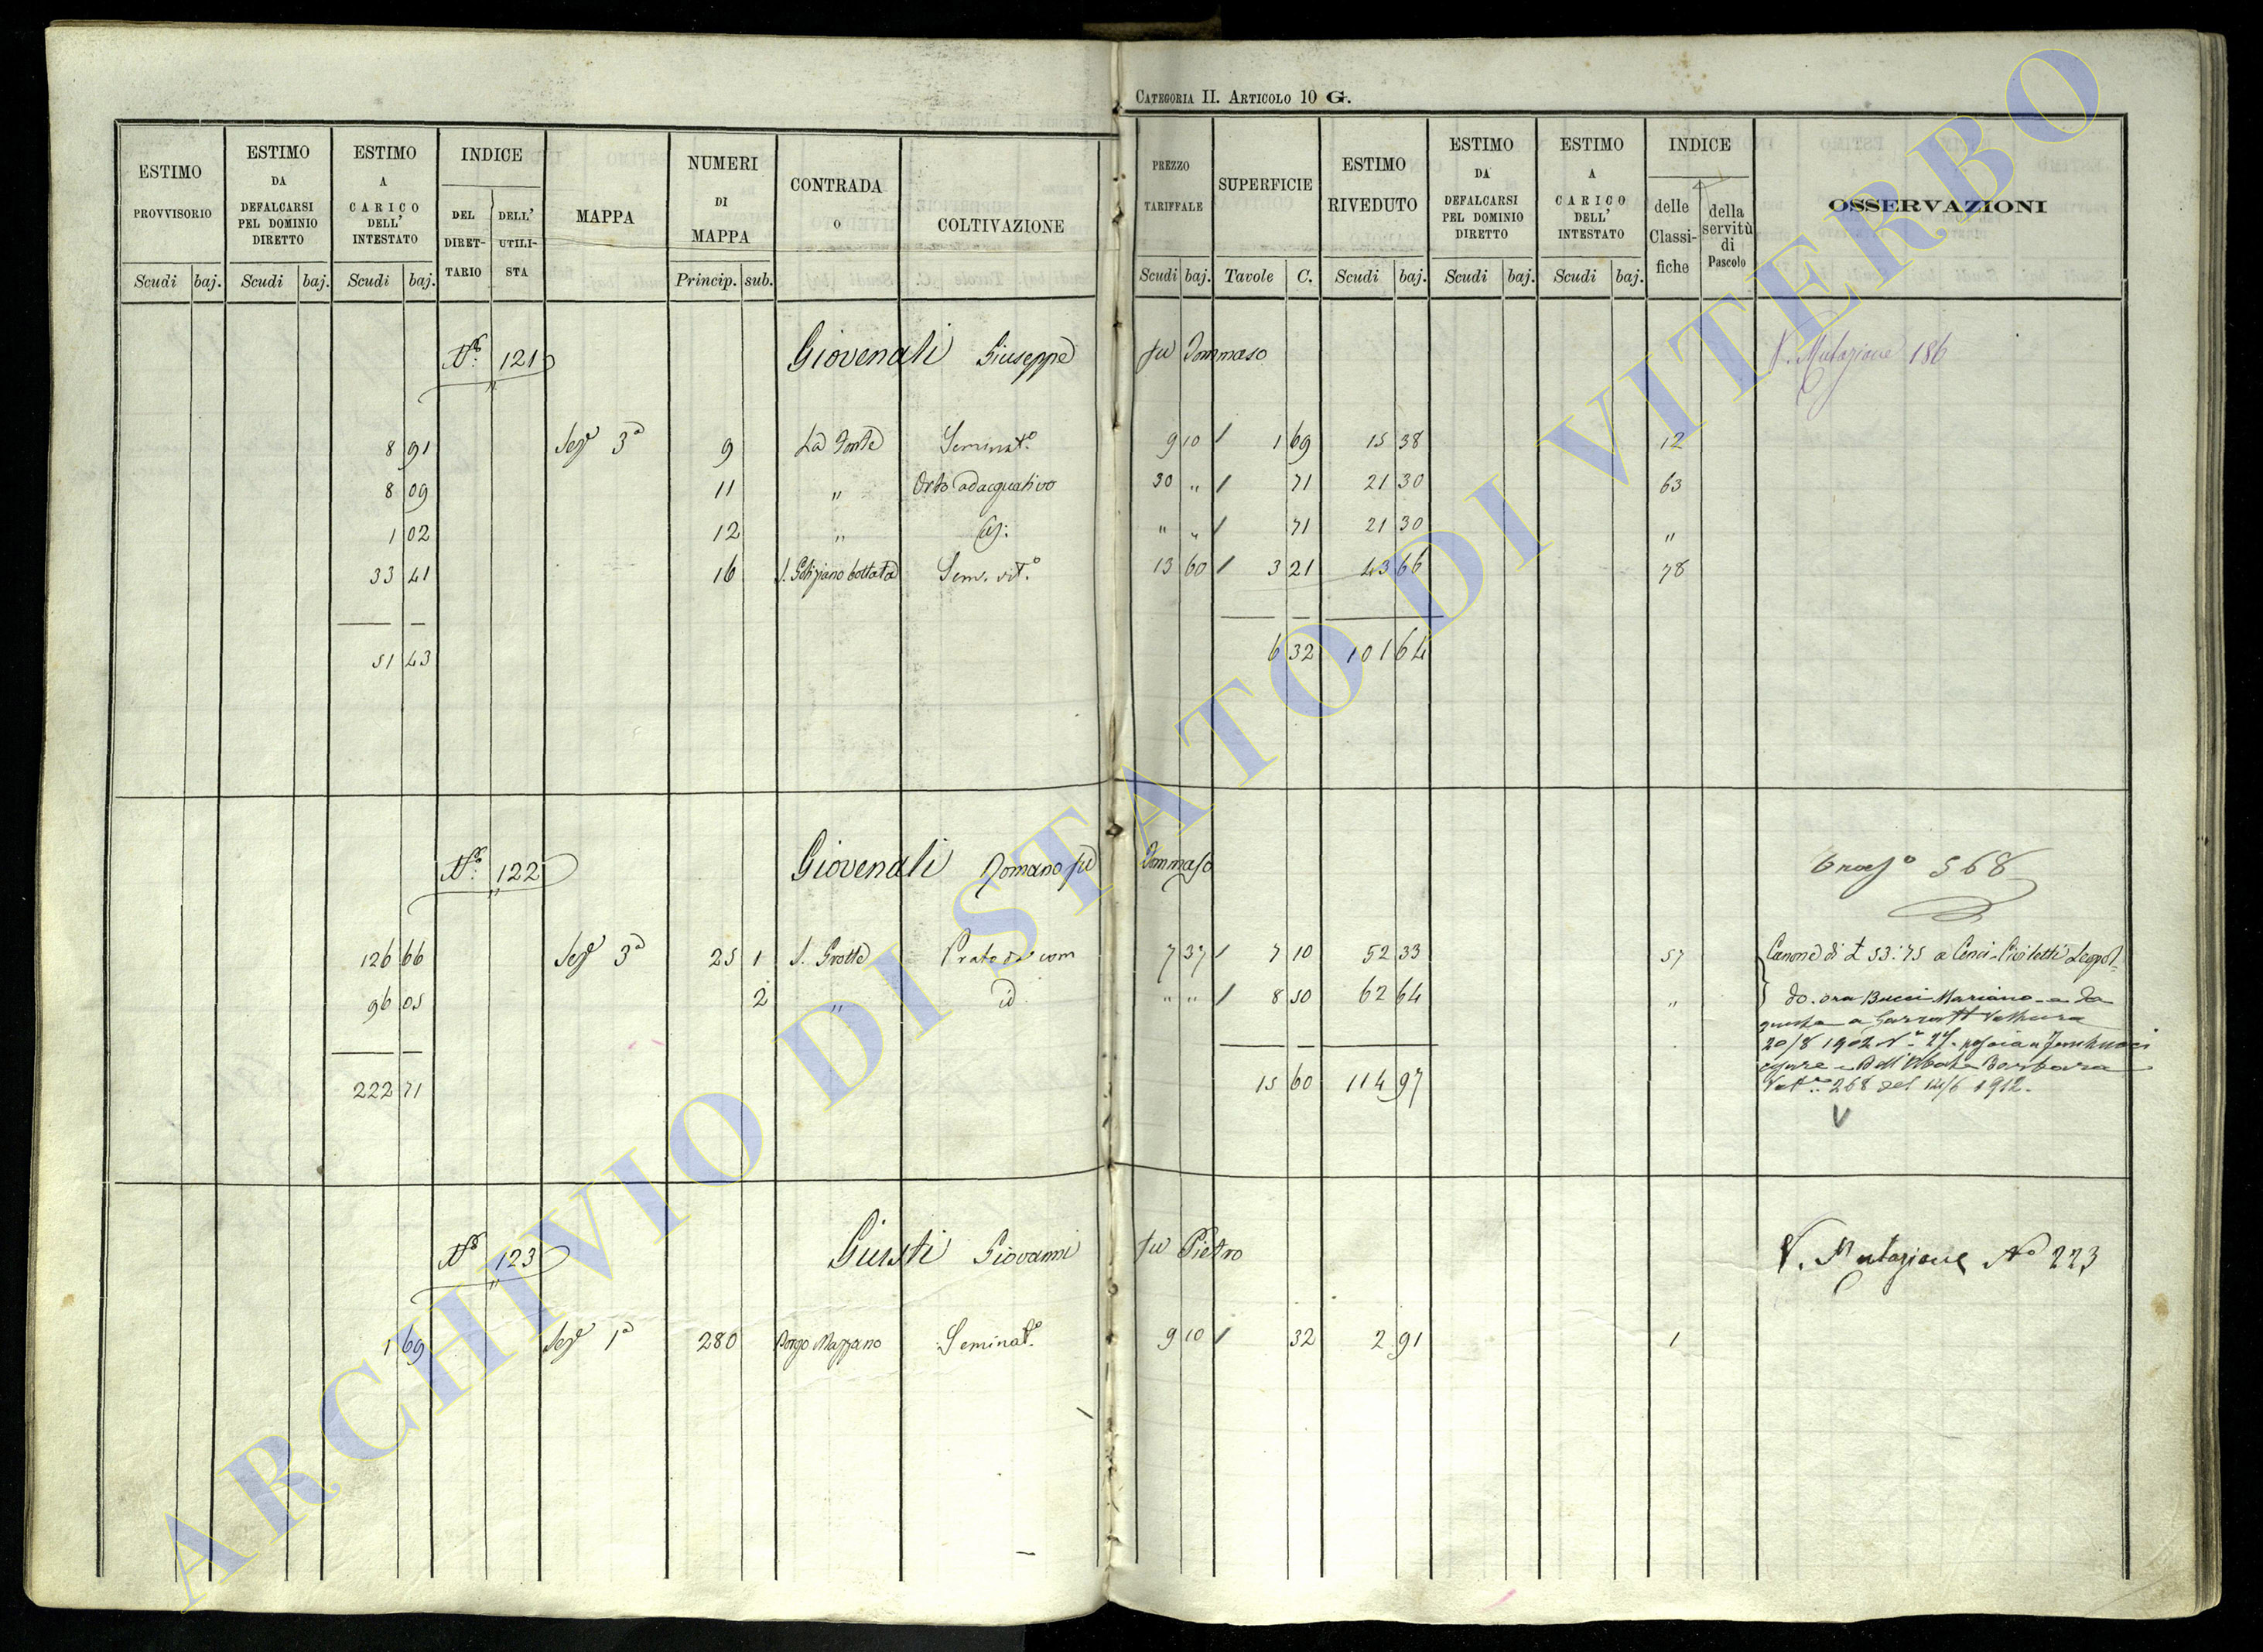 CATEGORIA II. ARTICOLO 10 G.
ESTIMO PROVVISORIO Scudi baj.
ESTIMO DA DEFALCARSI PEL DOMINIO DIRETTO Scudi baj.
ESTIMO A CARICO DELL' INTESTATO Scudi baj.
INDICE DEL DIRETTARIO DELL' UTILISTA
MAPPA
NUMERI DI MAPPA Princip. sub.
CONTRADA O COLTIVAZIONE
PREZZO TARIFFALE Scudi baj.
SUPERFICIE Tavole C.
ESTIMO RIVEDUTO Scudi baj.
ESTIMO DA DEFALCARSI PEL DOMINIO DIRETTO Scudi baj.
ESTIMO A CARICO DELL' INTESTATO Scudi baj.
INDICE delle Classifiche della servitù di Pascolo
OSSERVAZIONI
N° 121 Giovenali Giuseppe fu Tommaso V. Mutazione 186
8 91 Sez.e 3a 9 La Fonte Seminat.o 9 10 / 1 69 15 38 12
8 09 11 " Orto adacquativo 30 " / 71 21 30 63
1 02 12 " " " / 71 21 30 "
33 41 16 Sem. vit.o 13 60 / 3 21 43 66 78
51 43 6 32 101 64
N° 122 Giovenali Romano fu Tommaso 568
126 66 Sez.e 3a 25 1 S. Grotte Prato 7 37 / 7 10 52 33 57 Canone di £ 53:75 a Cenci Leopol-
96 05 2 " id " " / 8 50 62 64 " do. ora Bucci Mariano e da
questa a
20/8 1902 N° 27.
Barbara
268 del 14/6 1912.
V
222 71 15 60 114 97
N° 123 Giusti Giovanni fu Pietro V. Mutazione No 223
1 69 Sez.e 1a 280 Borgo Mazzano Seminat.o 9 10 / 32 2 91 1
ARCHIVIO DI STATO DI VITERBO